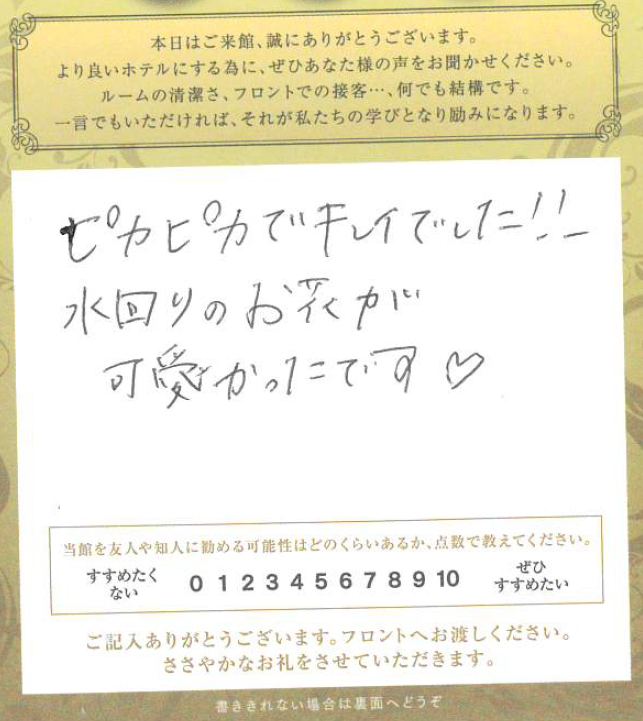 本日はご来館、誠にありがとうございます。
より良いホテルにする為に、ぜひあなた様の声をお聞かせください。
ルームの清潔さ、フロントでの接客…、何でも結構です。
一言でもいただければ、それが私たちの学びとなり励みになります。
ピカピカでキレイでした!!
水回りのお花が
可愛かったです♡
当館を友人や知人に勧める可能性はどのくらいあるか、点数で教えてください。
すすめたくない 0 1 2 3 4 5 6 7 8 9 10 ぜひすすめたい
ご記入ありがとうございます。フロントへお渡しください。
ささやかなお礼をさせていただきます。
書ききれない場合は裏面へどうぞ